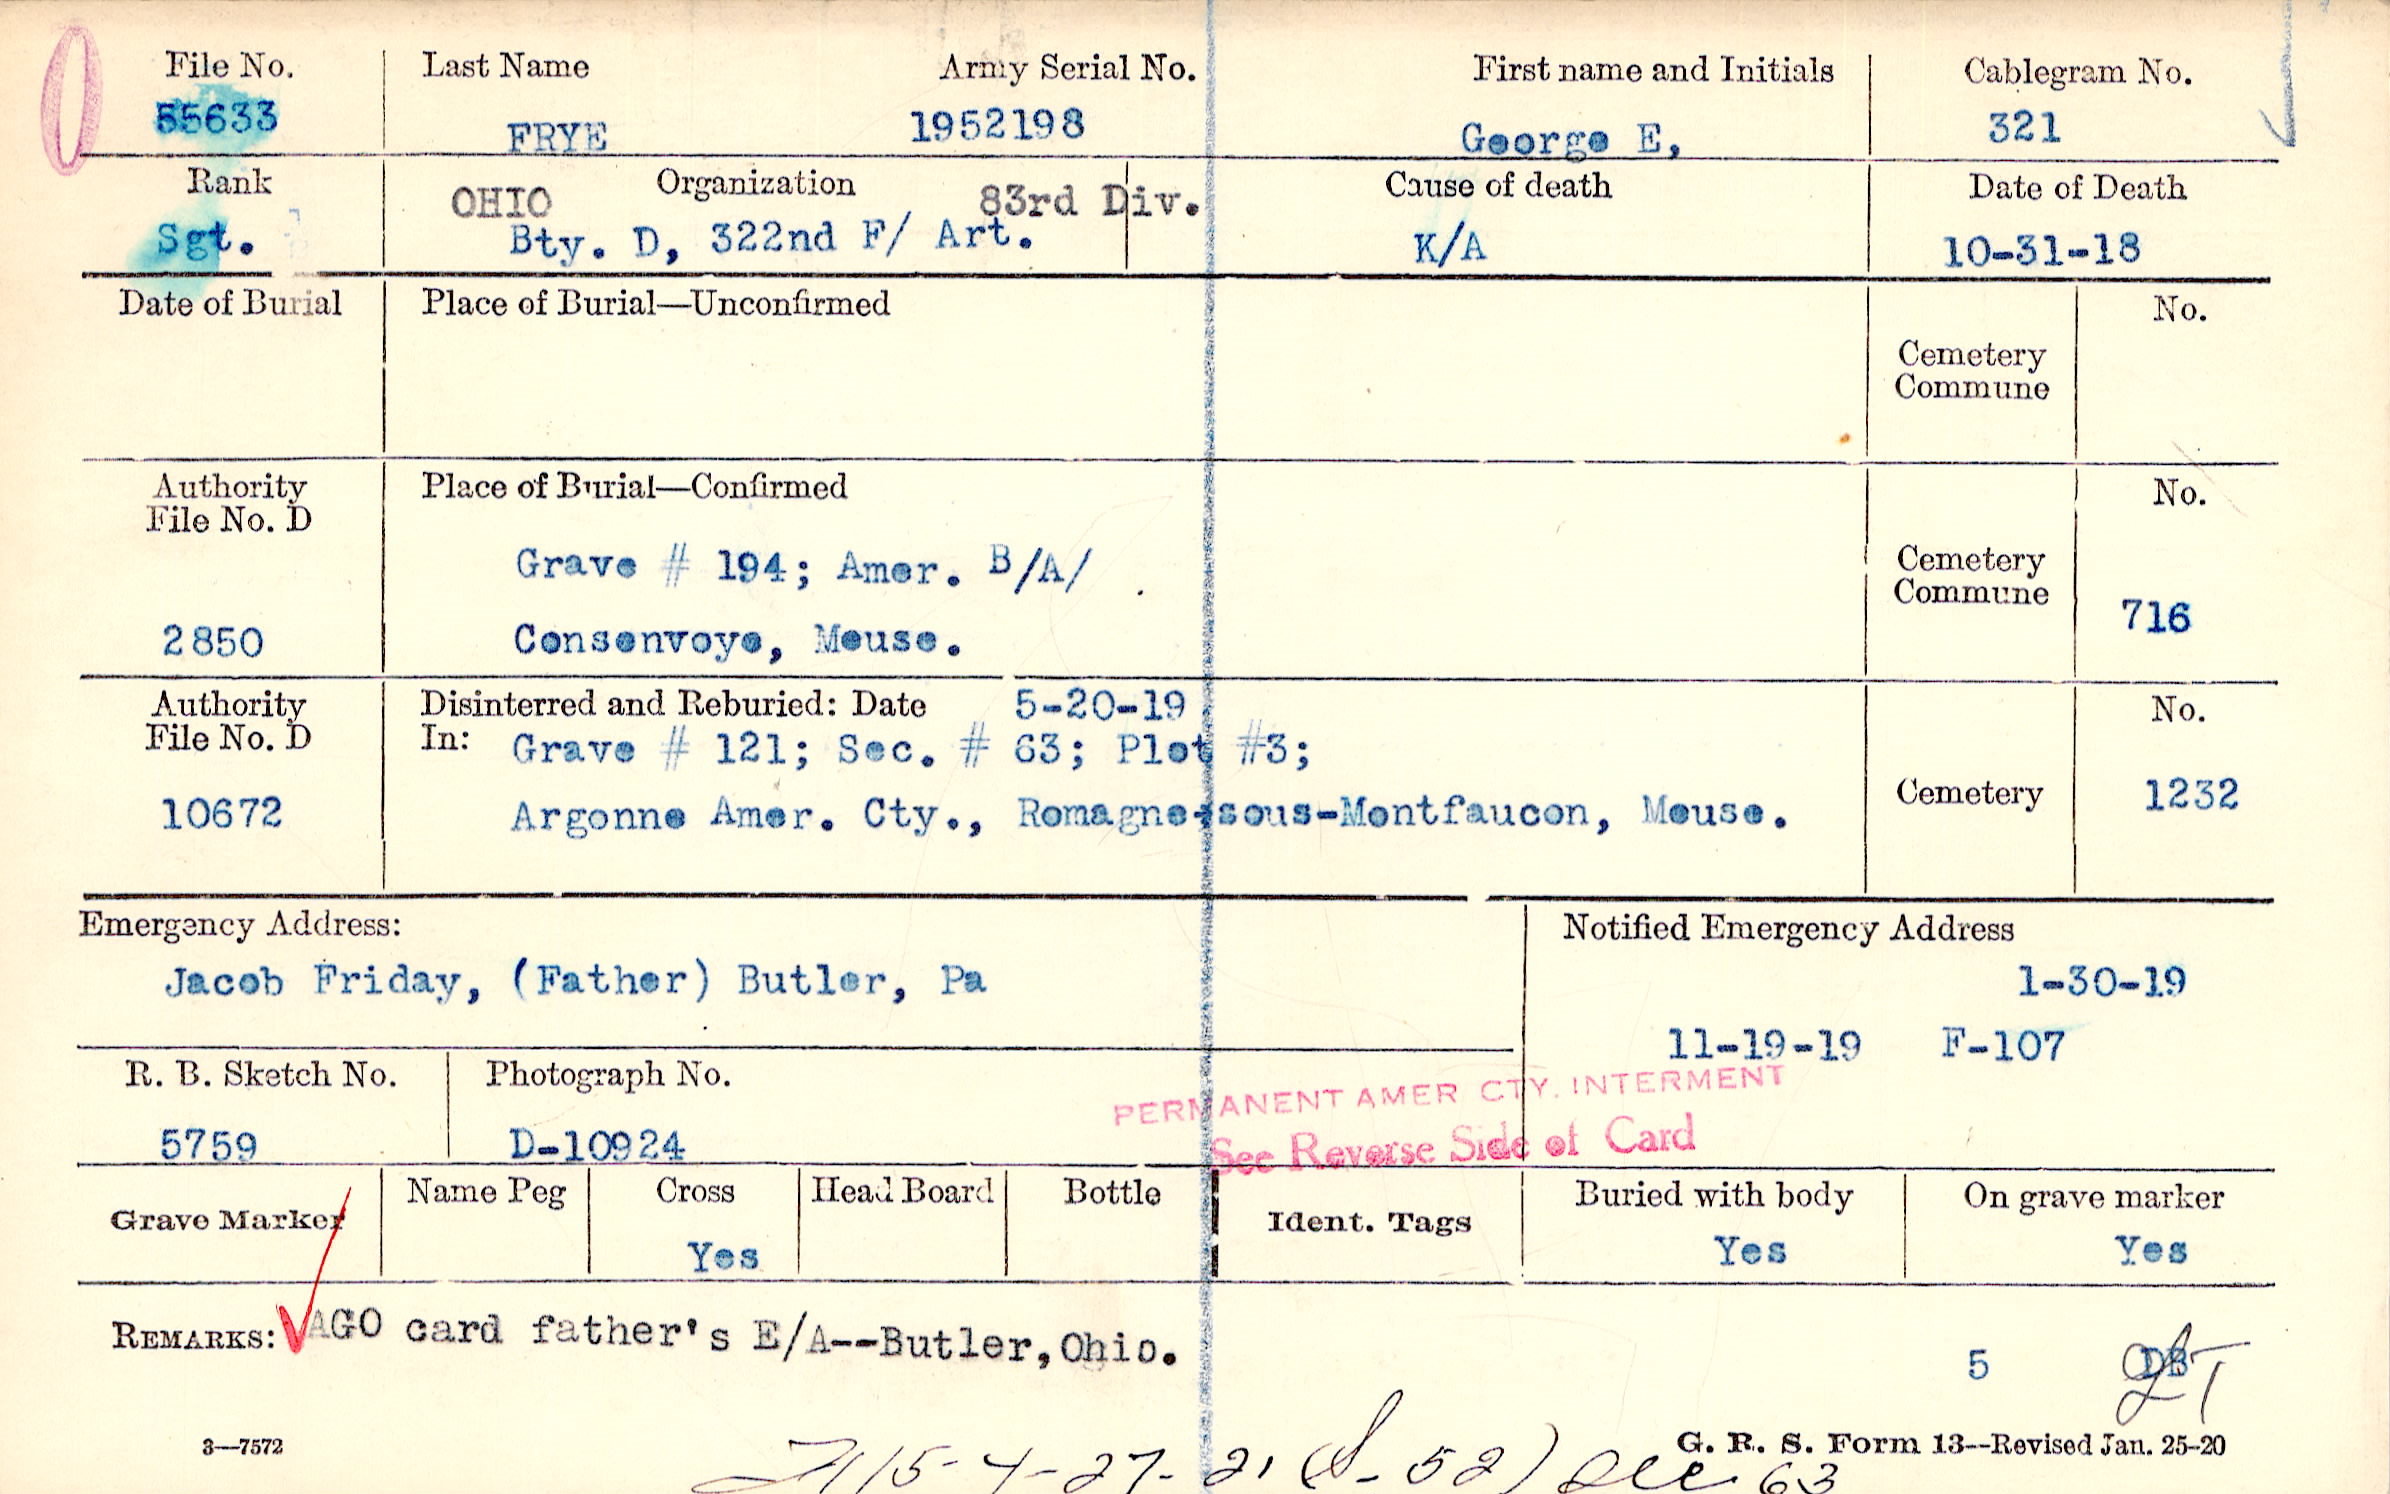 File No. Last Name Army Serial No. First name and Initials Cablegram No.
55633 FRYE 1952198 George E, 321
Rank OHIO Organization 83rd Div. Cause of death Date of Death
Sgt. Bty. D, 322nd F/ Art. K/A 10-31-18
Date of Burial Place of Burial—Unconfirmed No.
Cemetery
Commune
Authority Place of Burial—Confirmed No.
File No. D
Grave # 194; Amer. B/A/ Cemetery
Commune 716
2850 Consenvoye, Meuse.
Authority Disinterred and Reburied: Date 5-20-19 No.
File No. D In: Grave # 121; Sec. # 63; Plot #3;
10672 Argonne Amer. Cty., Romagne-sous-Montfaucon, Meuse. Cemetery 1232
Emergency Address: Notified Emergency Address
Jacob Friday, (Father) Butler, Pa 1-30-19
11-19-19 F-107
R. B. Sketch No. Photograph No.
PERMANENT AMER CTY. INTERMENT
5759 D-10924 See Reverse Side of Card
Grave Marker Name Peg Cross Head Board Bottle Ident. Tags Buried with body On grave marker
Yes Yes Yes
REMARKS: AGO card father's E/A--Butler, Ohio.
5
3—7572 G. R. S. Form 13--Revised Jan. 25-20
4-27-21 (S-52) Sec 63